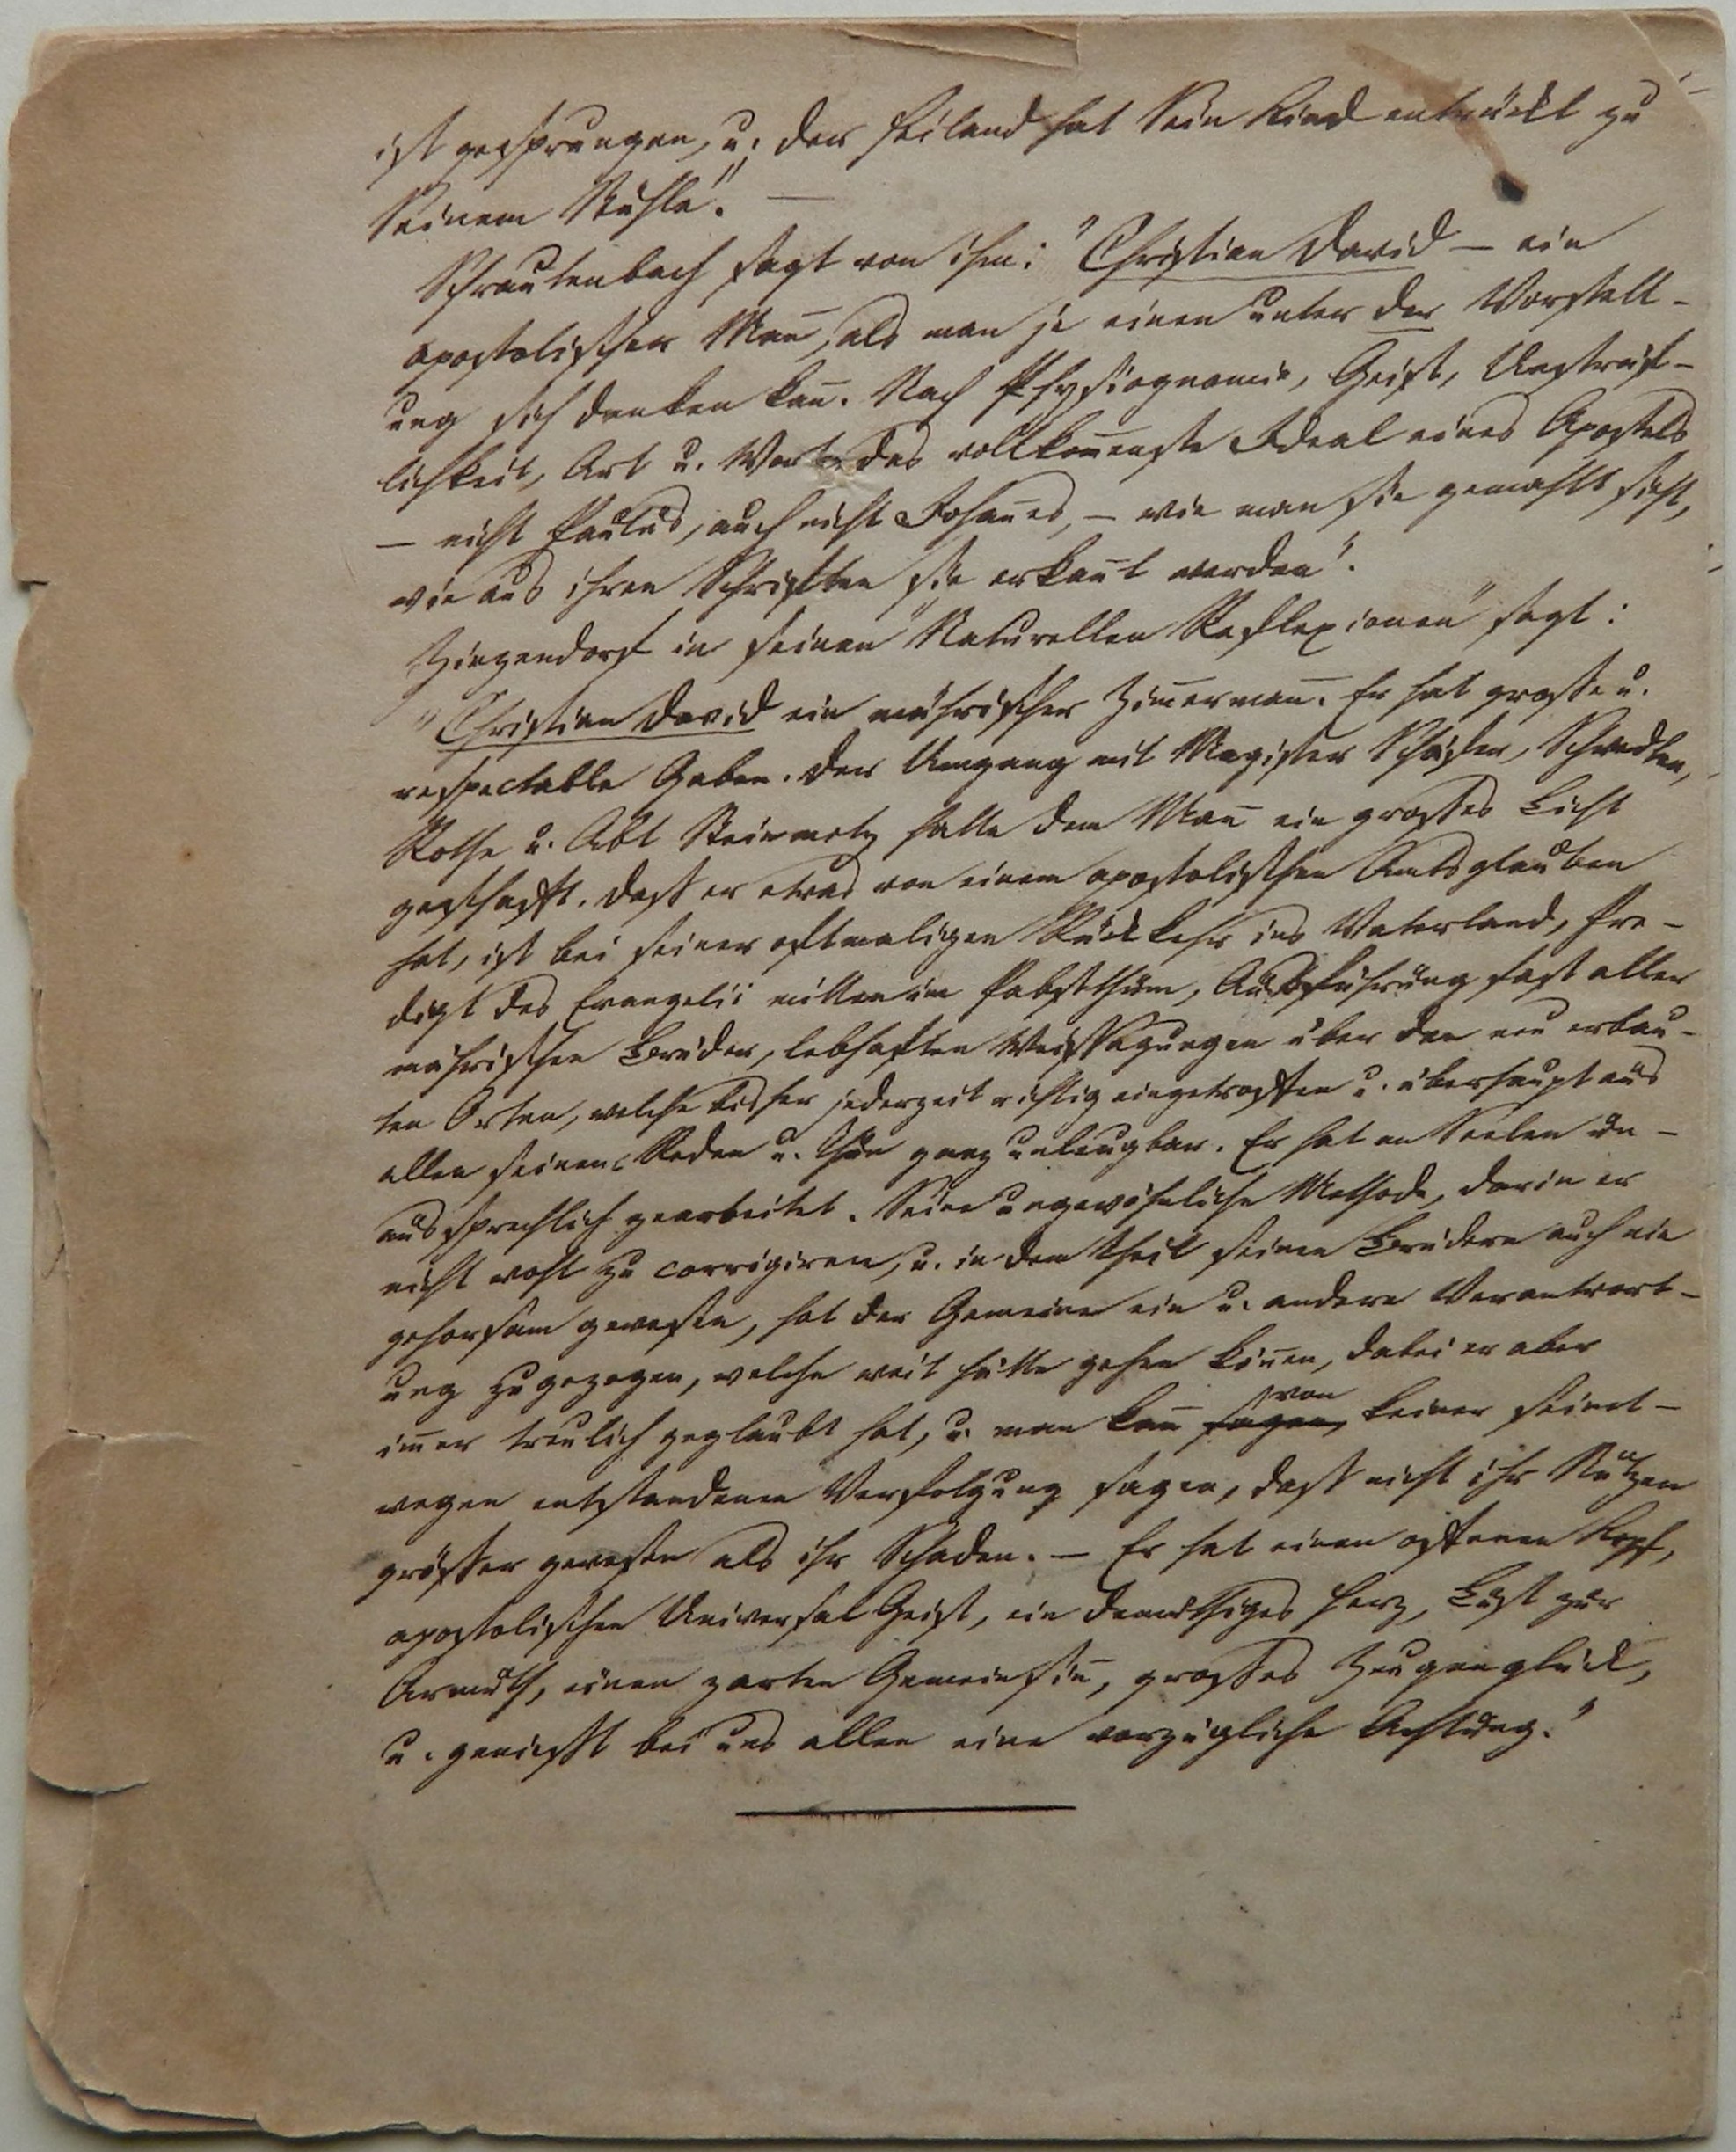 ist gesprungen, u. der Heiland hat Sein Kind entrückt zu
Seinem Stuhle". —
Schrautenbach sagt von ihm: "Christian David — ein
apostolischer Man̄, als man je einen unter der Vorstell-
ung sich denken kan̄. Nach Physiognomie, Geist, Unsträf-
lichkeit, Art u. Wort das vollkom̄enste Ideal eines Apostels
— nicht Paulus, auch nicht Johan̄es, — wie man sie gemahlt sieht,
wie aus ihren Schriften sie erkan̄t werden".
Zinzendorf in seinen "Naturellen Reflexionen" sagt:
"Christian David ein mährischer Zim̄erman̄. Er hat grosse u.
respectable Gaben. Der Umgang mit Magister Schäfer, Schwedler,
Rothe u. Abt Steinmetz hatte dem Man̄ ein grosses Licht
geschafft. Dass er etwas von einem apostolischen Amtsglauben
hat, ist bei seiner oftmaligen Rückkehr ins Vaterland, Pre-
digt des Evangelii mitten im Pabstthum, Ausführung fast aller
mährischen Brüder, lebhaften Weissagungen über den neu erbau-
ten Orten, welche bisher jederzeit richtig eingetroffen u. überhaupt aus
allen seinen Reden u. Thun ganz unleugbar. Er hat an Seelen un-
aussprechlich gearbeitet. Seine ungewöhnliche Methode, darin er
nicht wohl zu corrigiren, u. in dem Theil seinen Brüdern auch nie
gehorsam gewesen, hat der Gemeine ein u. andere Verantwort-
ung zugezogen, welche weit hätte gehen kön̄en, dabei er aber
im̄er treulich geglaubt hat, u. man kan̄ sagen, von keiner seinet-
wegen entstandenen Verfolgung sagen, dass nicht ihr Nutzen
grösser gewesen als ihr Schaden. — Er hat einen offenen Kopf,
apostolischen Universal Geist, ein demüthiges Herz, Lust zur
Armuth, einen zarten Gemeinsin̄, grosses Zeugenglück,
u. geniesst bei uns allen eine vorzügliche Achtung."